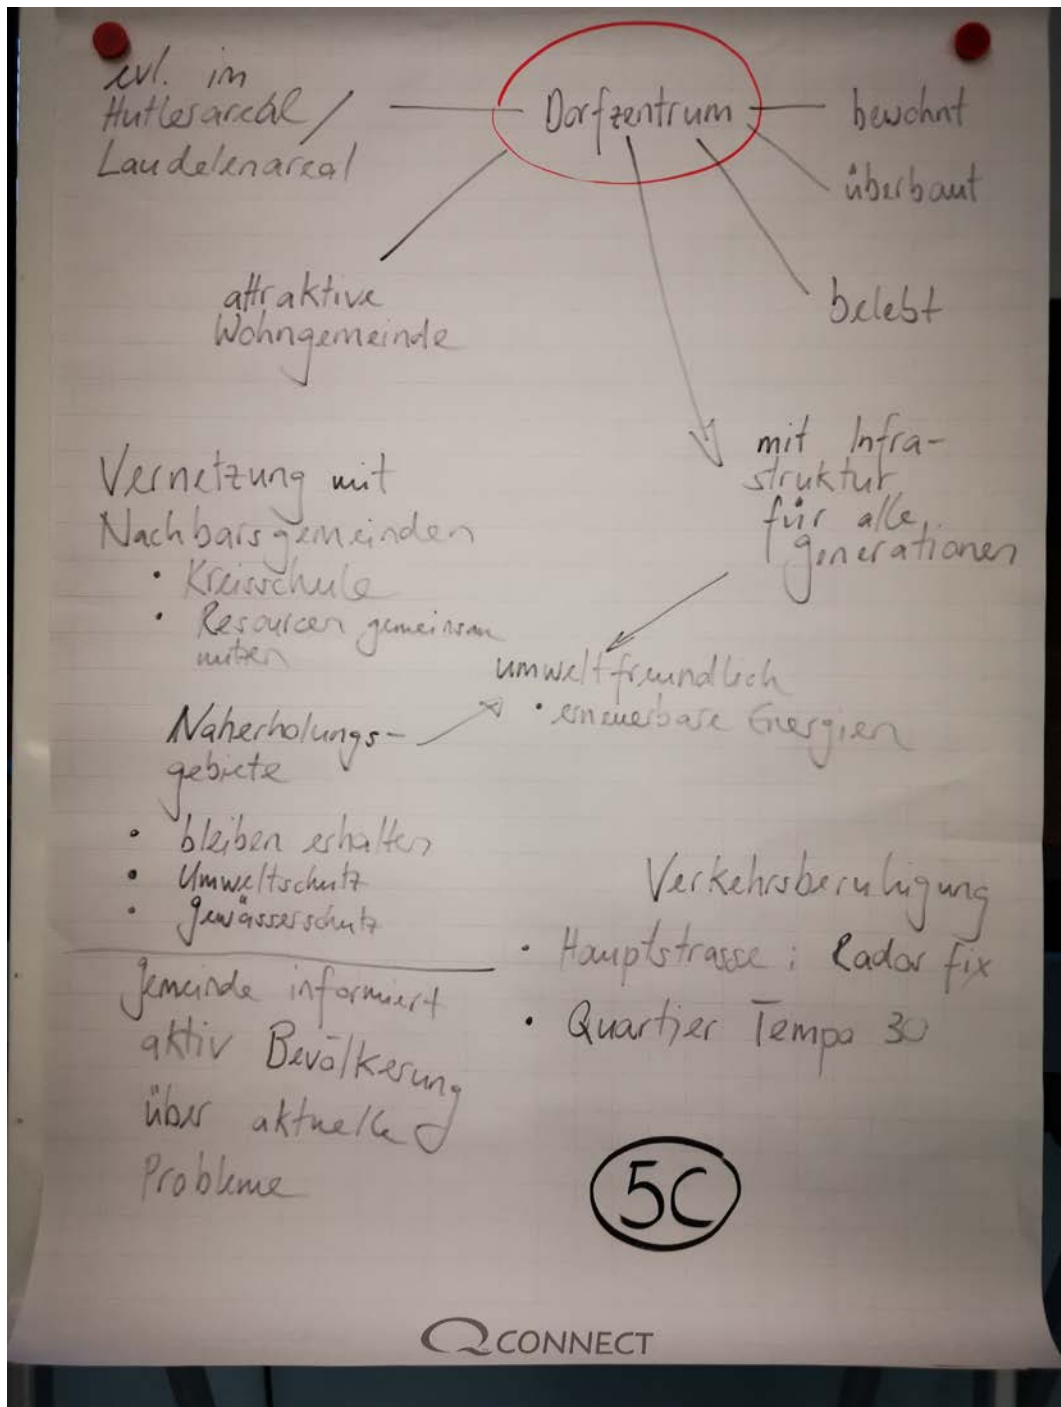 evl. im
Hutlesareal /
Laudelenareal
Dorfzentrum
bewohnt
überbaut
belebt
attraktive
Wohngemeinde
mit Infra-
struktur
für alle
Generationen
Vernetzung mit
Nachbarsgemeinden
• Kreisschule
• Resourcen gemeinsam
nutzen
umweltfreundlich
• erneuerbare Energien
Naherholungs-
gebiete
• bleiben erhalten
• Umweltschutz
• Gewässerschutz
Verkehrsberuhigung
• Hauptstrasse : Radar fix
• Quartier Tempo 30
Gemeinde informiert
aktiv Bevölkerung
über aktuelle
Probleme
5C
QCONNECT